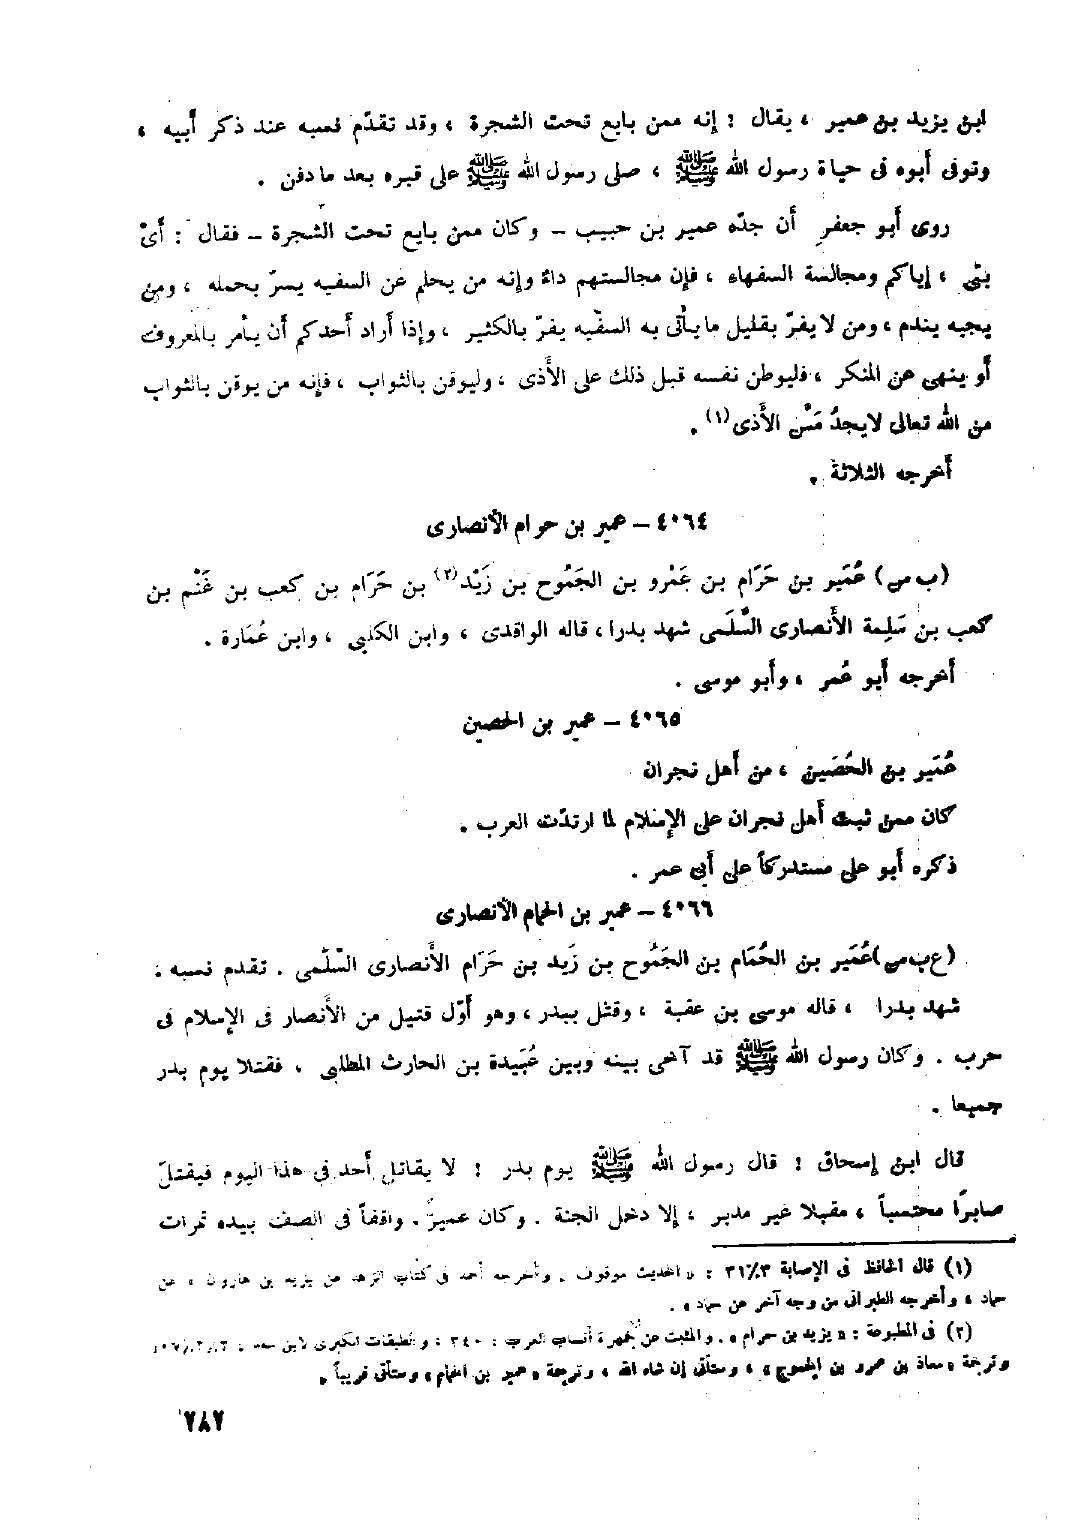 ابن يزيد بن عمير ، يقال : إنه ممن بايع تحت الشجرة ، وقد تقدّم نسبه عند ذكر أبيه ،
وتوفى أبوه فى حياة رسول الله ﷺ ، صلى رسول الله ﷺ على قبره بعد ما دفن .
روى أبو جعفر أن جدّه عمير بن حبيب – وكان ممن بايع تحت الشجرة – فقال : أىْ
بنّى ، إياكم ومجالسة السفهاء ، فإن مجالستهم داءٌ وإنه من يحلم عن السفيه يسرّ بحمله ، ومن
يجبه يندم ، ومن لا يفرّ بقليل ما يأتى به السفيه يفرّ بالكثير ، وإذا أراد أحدكم أن يأمر بالمعروف
أو ينهى عن المنكر ، فليوطن نفسه قبل ذلك على الأذى ، وليوقن بالثواب ، فإنه من يوقن بالثواب
من الله تعالى لا يجدُ مَسّ الأذى (١) .
أخرجه الثلاثة .
٤٠٦٤ – عمير بن حرام الأنصارى
(ب س) عُمَير بن حَرَام بن عَمْرو بن الجَمُوح بن زَيْد (٢) بن حَرَام بن كعب بن غَنْم بن
كعب بن سَلِمة الأنصارى السَّلَمى شهد بدرا ، قاله الواقدى ، وابن الكلبى ، وابن عُمَارة .
أخرجه أبو عُمر ، وأبو موسى .
٤٠٦٥ – عمير بن الحصين
عُمَير بن الحُصَين ، من أهل نجران
كان ممن ثبت أهل نجران على الإسلام لما ارتدّت العرب .
ذكره أبو على مستدركاً على أبى عمر .
٤٠٦٦ – عمير بن الحمام الأنصارى
(ع ب س) عُمَير بن الحُمَام بن الجَمُوح بن زَيد بن حَرَام الأنصارى السَّلَمى . تقدم نسبه .
شهد بدرا ، قاله موسى بن عقبة ، وقتل ببدر ، وهو أوّل قتيل من الأنصار فى الإسلام فى
حرب . وكان رسول الله ﷺ قد آخى بينه وبين عُبَيدة بن الحارث المطلبى ، فقتلا يوم بدر
جميعا .
قال ابن إسحاق : قال رسول الله ﷺ يوم بدر : لا يقاتل أحد فى هذا اليوم فيقتل
صابرًا محتسباً ، مقبلا غير مدبر ، إلا دخل الجنة . وكان عميرٌ . واقفاً فى الصف بيده تمرات
(١) قال الحافظ فى الإصابة ٣١/٣ : « الحديث موقوف . وأخرجه أحمد فى كتاب الزهد من يزيد بن هارون ، عن
حماد ، وأخرجه الطبرانى من وجه آخر عن حماد » .
(٢) فى المطبوعة : « يزيد بن حرام » . والمثبت عن جمهرة أنساب العرب : ٣٤٠ ، والطبقات الكبرى لابن سعد :
وترجمة « معاذ بن عمرو بن الجموح » ، وستأتى إن شاء الله ، وترجمة « عمير بن الحمام » وستأتى قريباً .
٢٨٧